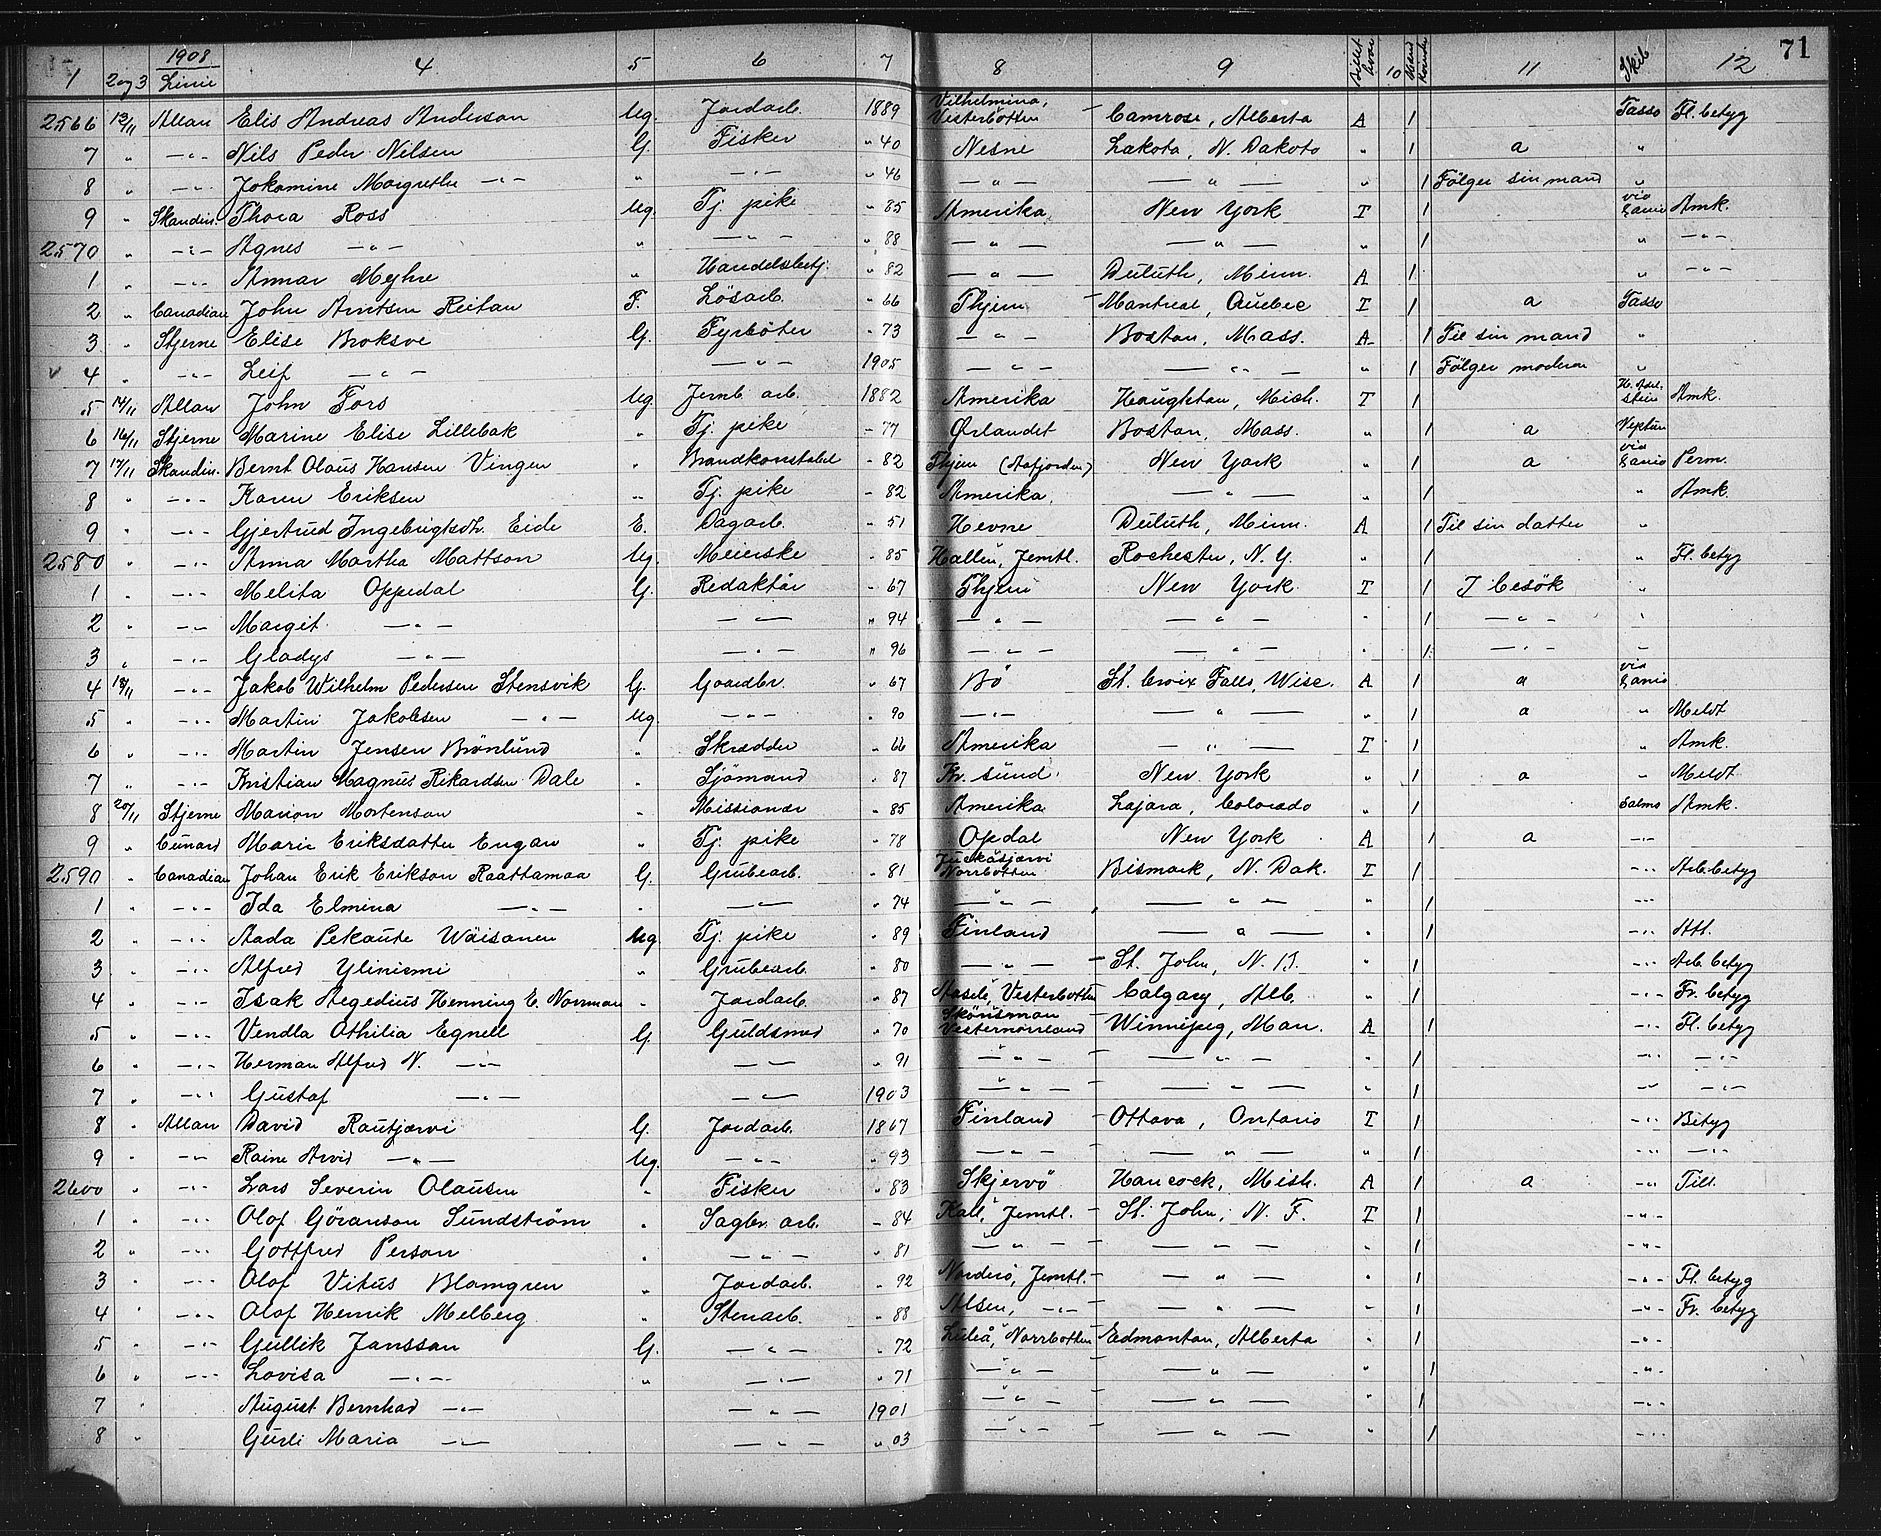 71
1908
1 2 og 3 Linie 4 5 6 7 8 9 Billet hvor 10 Mand Kvinde 11 Skib 12
2566 13/11 Allan Elis Andreas Anderson Ug. Jordarb. 1889 Vilhelmina, Vesterbotten Camrose, Alberta A 1 Tasso Fl. betyg
7 " -"- Nils Peder Nilsen G. Fisker " 40 Nesne Lakota, N. Dakota " 1 a "
8 " -"- Jokamine Margrethe -"- " -"- " 46 -"- -"- " 1 Følger sin mand "
9 " Skandin. Thora Ross Ug. Tj. pike " 85 Amerika New York T 1 via Amk.
2570 " -"- Agnes -"- " -"- " 88 -"- -"- " 1 " -"-
1 " -"- Annar Myhre " Handelsbetj. " 82 -"- Duluth, Minn. A 1 " -"-
2 " Canadian John Arntsen Reitan F. Løsarb. " 66 Thjem Montreal, Quebec T 1 a Tasso
3 " Stjerne Elise Broksve G. Fyrbøter " 73 -"- Boston, Mass. A 1 Til sin mand "
v 4 " -"- Leif -"- -"- 1905 -"- -"- " 1 Følger moderen "
5 14/11 Allan John Fors Ug. Jernb. arb. 1882 Amerika Haughtan, Mich. T 1 Amk.
6 16/11 Stjerne Marine Elise Lillebak " Tj. pike - 77 Ørlandet Boston, Mass. " 1 a Neptun
7 17/11 Skandin. Bernt Olaus Hansen Vingen " Brandkonstabel - 82 Thjem (Aafjorden) New York " 1 a via Perm.
8 " -"- Karen Eriksen " Tj. pike - 82 Amerika -"- " 1 " Amk.
9 " -"- Gjertrud Ingebrigtsdtr. Eide E. Dagarb. " 51 Hevne Duluth, Minn. A 1 Til sin datter "
2580 " -"- Anna Martha Mattson Ug. Meierske " 85 Hallen, Jemtl. Rochester, N. Y. " 1 " Fl. betyg
1 " -"- Melita Oppedal G. Redaktør " 67 Thjem New York T 1 I besøk "
2 " -"- Margit -"- -"- " 94 -"- -"- " 1 -"- "
3 " -"- Gladys -"- -"- " 96 -"- -"- 1 -"- "
4 18/11 -"- Jakob Wilhelm Pedersen Stensvik G. Gaardbr. " 67 Bø St. Croix Falls, Wisc. A 1 a via
5 " -"- Martin Jakobsen -"- Ug. -"- " 90 -"- -"- " 1 a " Meldt
6 " -"- Martin Jensen Brønlund " Skrædder " 66 Amerika -"- T 1 " Amk.
7 " -"- Kristian Magnus Rikardsen Dale " Sjømand " 87 Kr. sund. New York " 1 a " Meldt
8 20/11 Stjerne Marion Mortenson " Missionær " 85 Amerika Lajara, Colorado " 1 Salmo Amk.
9 " Cunard Marie Eriksdatter Engan " Tj. pike " 78 Opdal New York A 1 a -"-
2590 " Canadian Johan Erik Erikson Raattamaa G. Grubearb. " 81 Juckasjærvi Norrbotten Bismark, N. Dak. T 1 -"- Arb. betyg
1 " -"- Ida Elmina -"- " -"- " 74 -"- -"- " 1 -"-
2 " -"- Aada Pekaute Wäisanen Ug. Tj. pike " 89 Finland -"- " 1 -"- Att.
3 " -"- Alfred Yliniemi " Grubearb. " 80 -"- St. John, N. B. " 1 -"- Arb. betyg
4 " -"- Isak Aegedius Henning E. Norrman " Jordarb. " 87 Aasele, Vesterbotten Calgary, Alb. " 1 -"- Fr. betyg
5 " -"- Vendla Othilia Egnell G. Guldsmed " 70 Skönsmon Vesternorrland Winnipeg, Man. A 1 -"- Fl. betyg
6 " -"- Herman Alfred N. -"- -"- " 91 -"- -"- " 1 -"- -"-
7 " -"- Gustaf -"- -"- 1903 -"- -"- " 1 -"- -"-
8 " Allan David Rautjærvi G. Jordarb. 1867 Finland Ottava, Ontario T 1 -"- Betyg
9 " -"- Raine Arvid -"- Ug. -"- " 93 -"- -"- " 1 -"- -"-
2600 " -"- Lars Severin Olausen " Fisker " 83 Skjervø Hancock, Mich. A 1 a -"- Till.
1 " -"- Olof Göranson Sundström " Sagbr. arb. - 84 Kall, Jemtl. St. John, N. F. T 1 -"-
2 " -"- Gottfred Person " -"- " 81 -"- -"- " 1 -"-
3 " -"- Olof Vitus Blomgren " Jordarb. " 92 Norderö, Jemtl. -"- " 1 -"- Fl. betyg
4 " -"- Olof Henrik Melberg " Stenarb. " 88 Alsen, -"- -"- " 1 -"- Fr. betyg
5 " -"- Gullik Jansson G. -"- " 72 Luleå, Norrbotten Edmonton, Alberta " 1 -"-
6 " -"- Lovisa -"- " -"- " 71 -"- -"- " 1 -"-
7 " August Bernhard -"- -"- 1901 -"- -"- " 1 -"-
8 " Gurli Maria -"- -"- " 03 -"- -"- 1 -"-